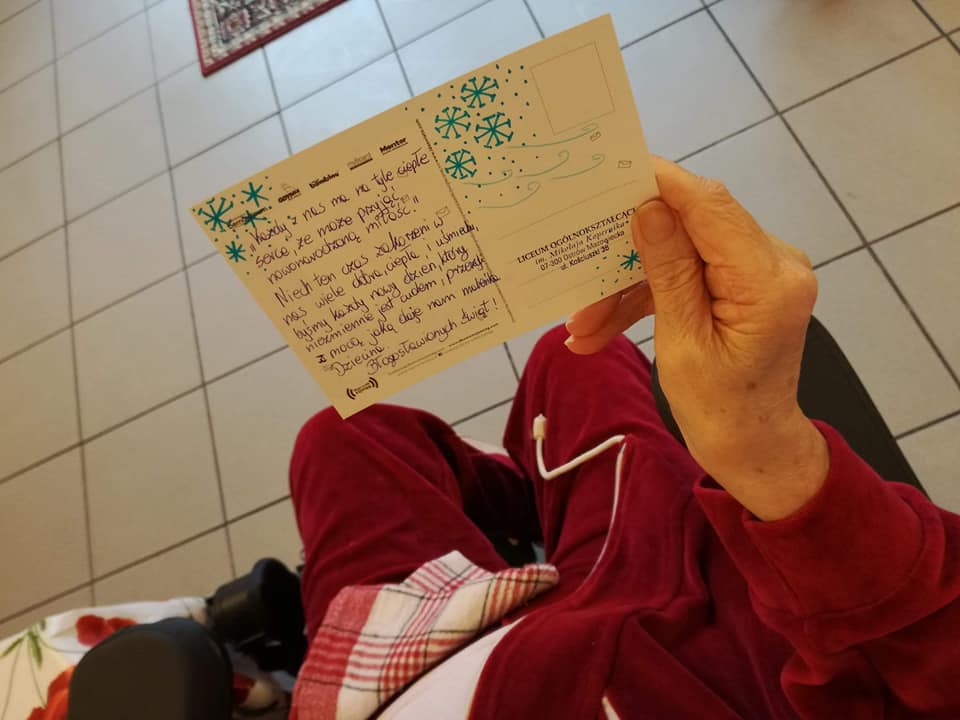 Mentor
"Każdy z nas ma na tyle ciepłe
serce, że może przyjąć
nowonarodzoną miłość."
Niech ten czas zakorzeni w
nas wiele dobra, ciepła i uśmiechu,
byśmy każdy nowy dzień, który
niezmiennie jest cudem, przeżyli
z mocą, jaką daje nam maleńka
Dziecina.
Błogosławionych Świąt!
LICEUM OGÓLNOKSZTAŁCĄCE
im. Mikołaja Kopernika
07-300 Ostrów Mazowiecka
ul. Kościuszki 36